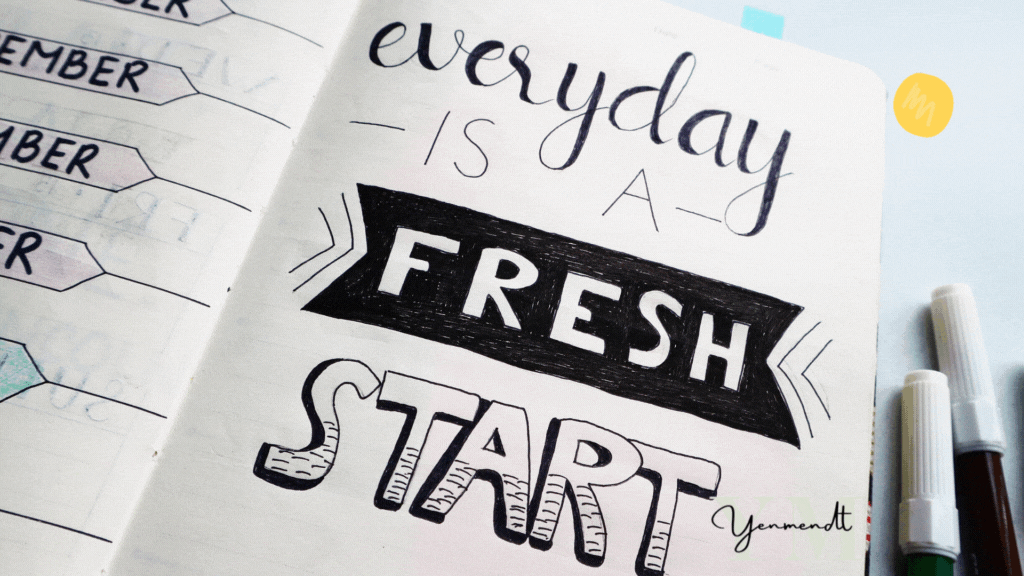 BER
EMBER
MBER
ER
everyday
IS A
FRESH
START
Yenmendt